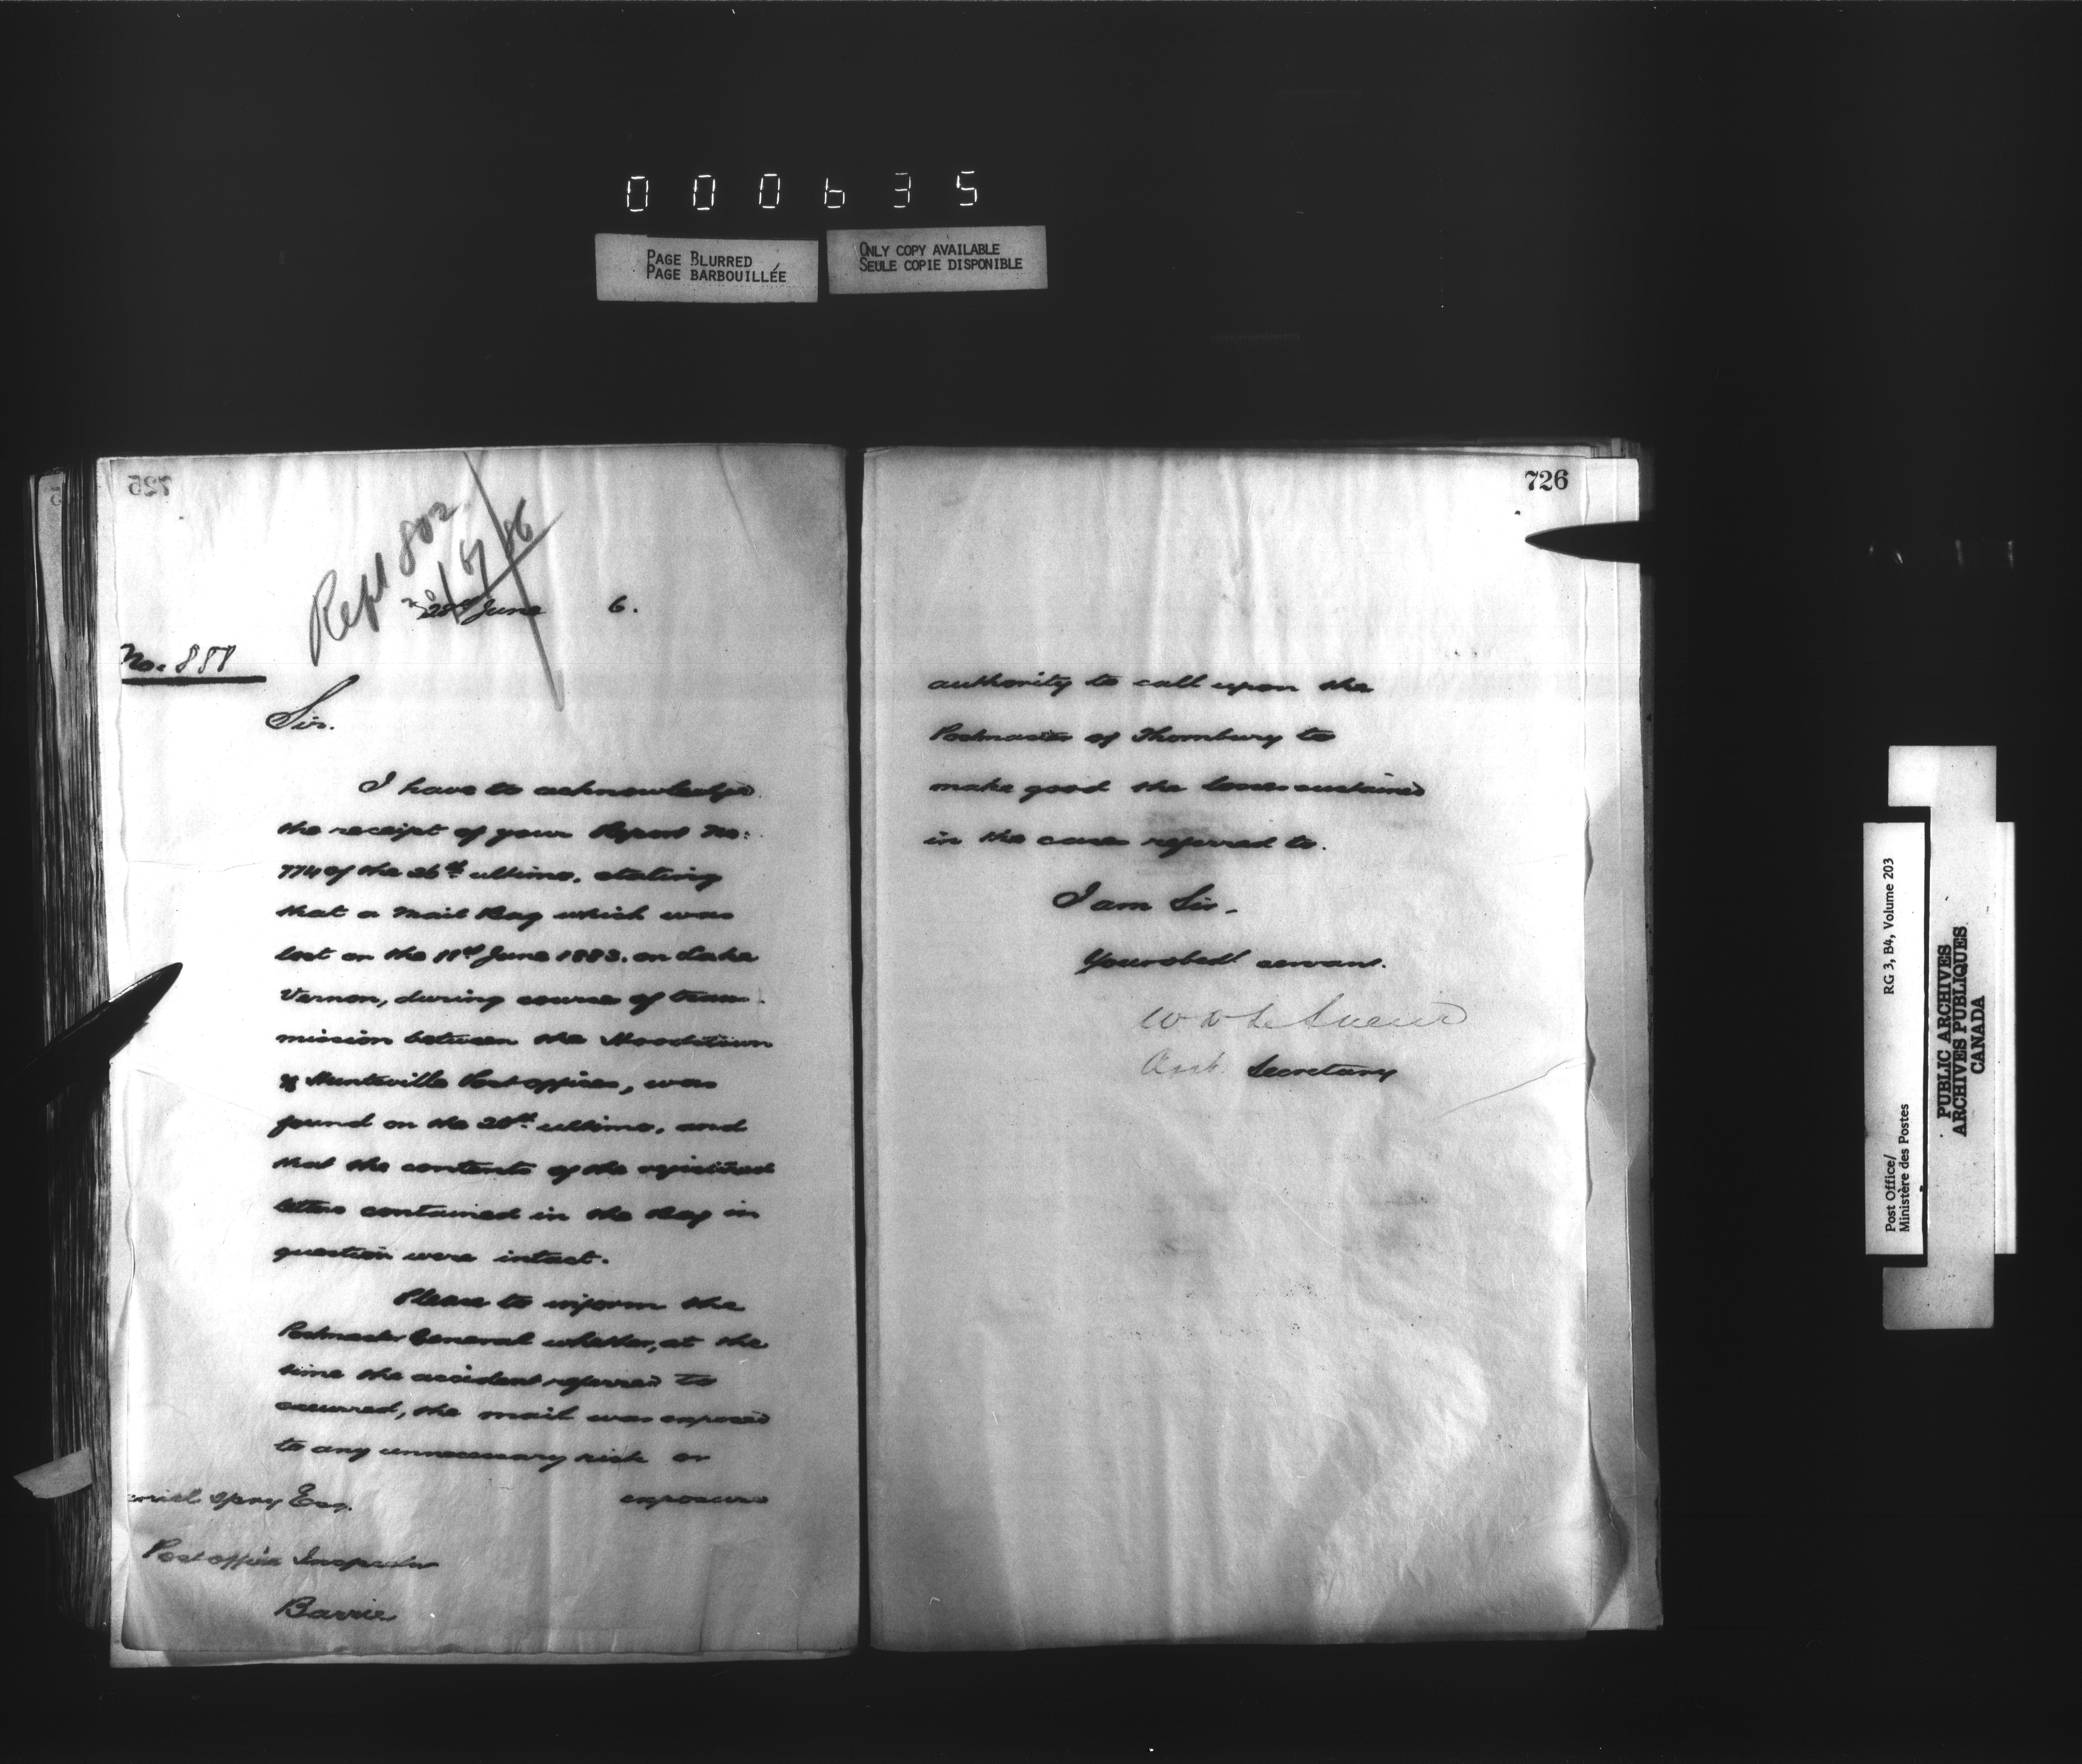 000635
PAGE BLURRED
PAGE BARBOUILLÉE
ONLY COPY AVAILABLE
SEULE COPIE DISPONIBLE
725
Repl 802
6.
No. 888
Sir.
I have to acknowledge
the receipt of your Report No:
774 of the 26th ultimo, stating
that a Mail Bag which was
lost on the 11th June 1883, on Lake
Vernon, during course of trans
mission between the Hoodstown
& Huntsville Post offices, was
found on the 20th ultimo, and
that the contents of the registered
letters contained in the Bag in
question were intact.
Please to inform the
Postmaster General whether, at the
time the accident referred to
occurred, the mail was exposed
to any unnecessary risk or
exposure
Spry Esq.
Post office Inspector
Barrie
726
authority to call upon the
Postmaster of Thornbury to
make good the losses sustained
in the cases referred to.
I am Sir.
Your obedt servant.
W D LeSueur
Asst. Secretary
Post Office/
Ministère des Postes
RG 3, B4, Volume 203
PUBLIC ARCHIVES
ARCHIVES PUBLIQUES
CANADA